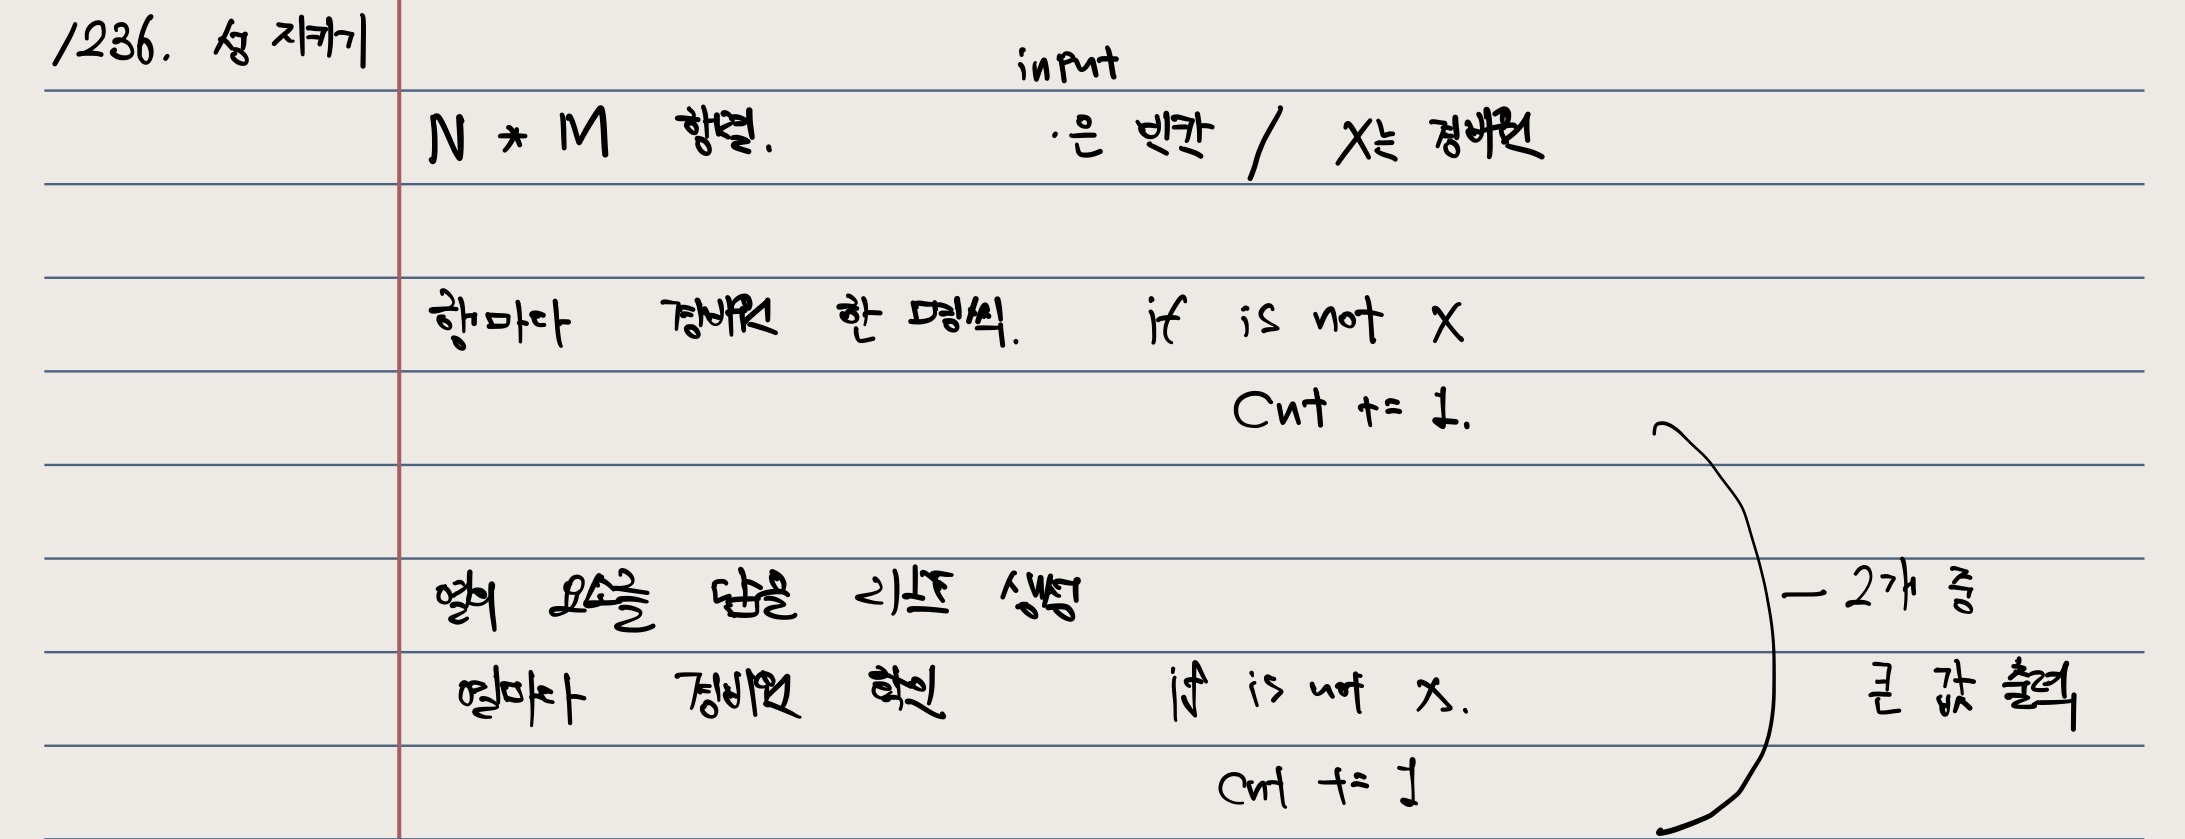 1236. 성 지키기
input
N * M 행렬. ·은 빈칸 / X는 경비원
행마다 경비원 한 명씩. if is not X
Cnt += 1.
열의 요소를 담을 리스트 생성
열마다 경비원 확인 if is not X.
Cnt += 1
— 2개 중
큰 값 출력